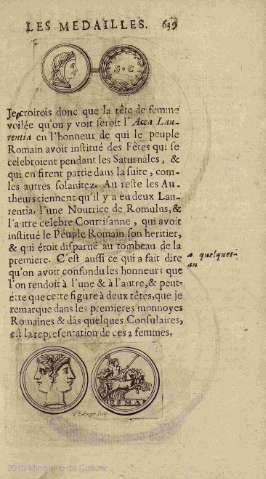 LES MEDAILLES.
S·C
Je croirois donc que la tête de femme
voilée qu'on y voit seroit l'Acca Lau-
rentia en l'honneur de qui le peuple
Romain avoit institué des Fêtes qui se
celebroient pendant les Saturnales, &
qui en firent partie dans la suite, com-
les autres solanitez. Au reste les Au-
theurs tiennent qu'il y a eu deux Lau-
rentia, l'une Nourrice de Romulus, &
l'autre celebre Courtisanne, qui avoit
institué le Peuple Romain son heritier,
& qui étoit disparue au tombeau de la
premiere. C'est aussi ce qui a fait dire
a quelques-
qu'on avoit confondu les honneurs que
l'on rendoit à l'une & à l'autre, & peut-
être que cette figure à deux têtes, que je
remarque dans les premieres monnoyes
Romaines & dās quelques Consulaires,
est la representation de ces 2 femmes.
ROMA